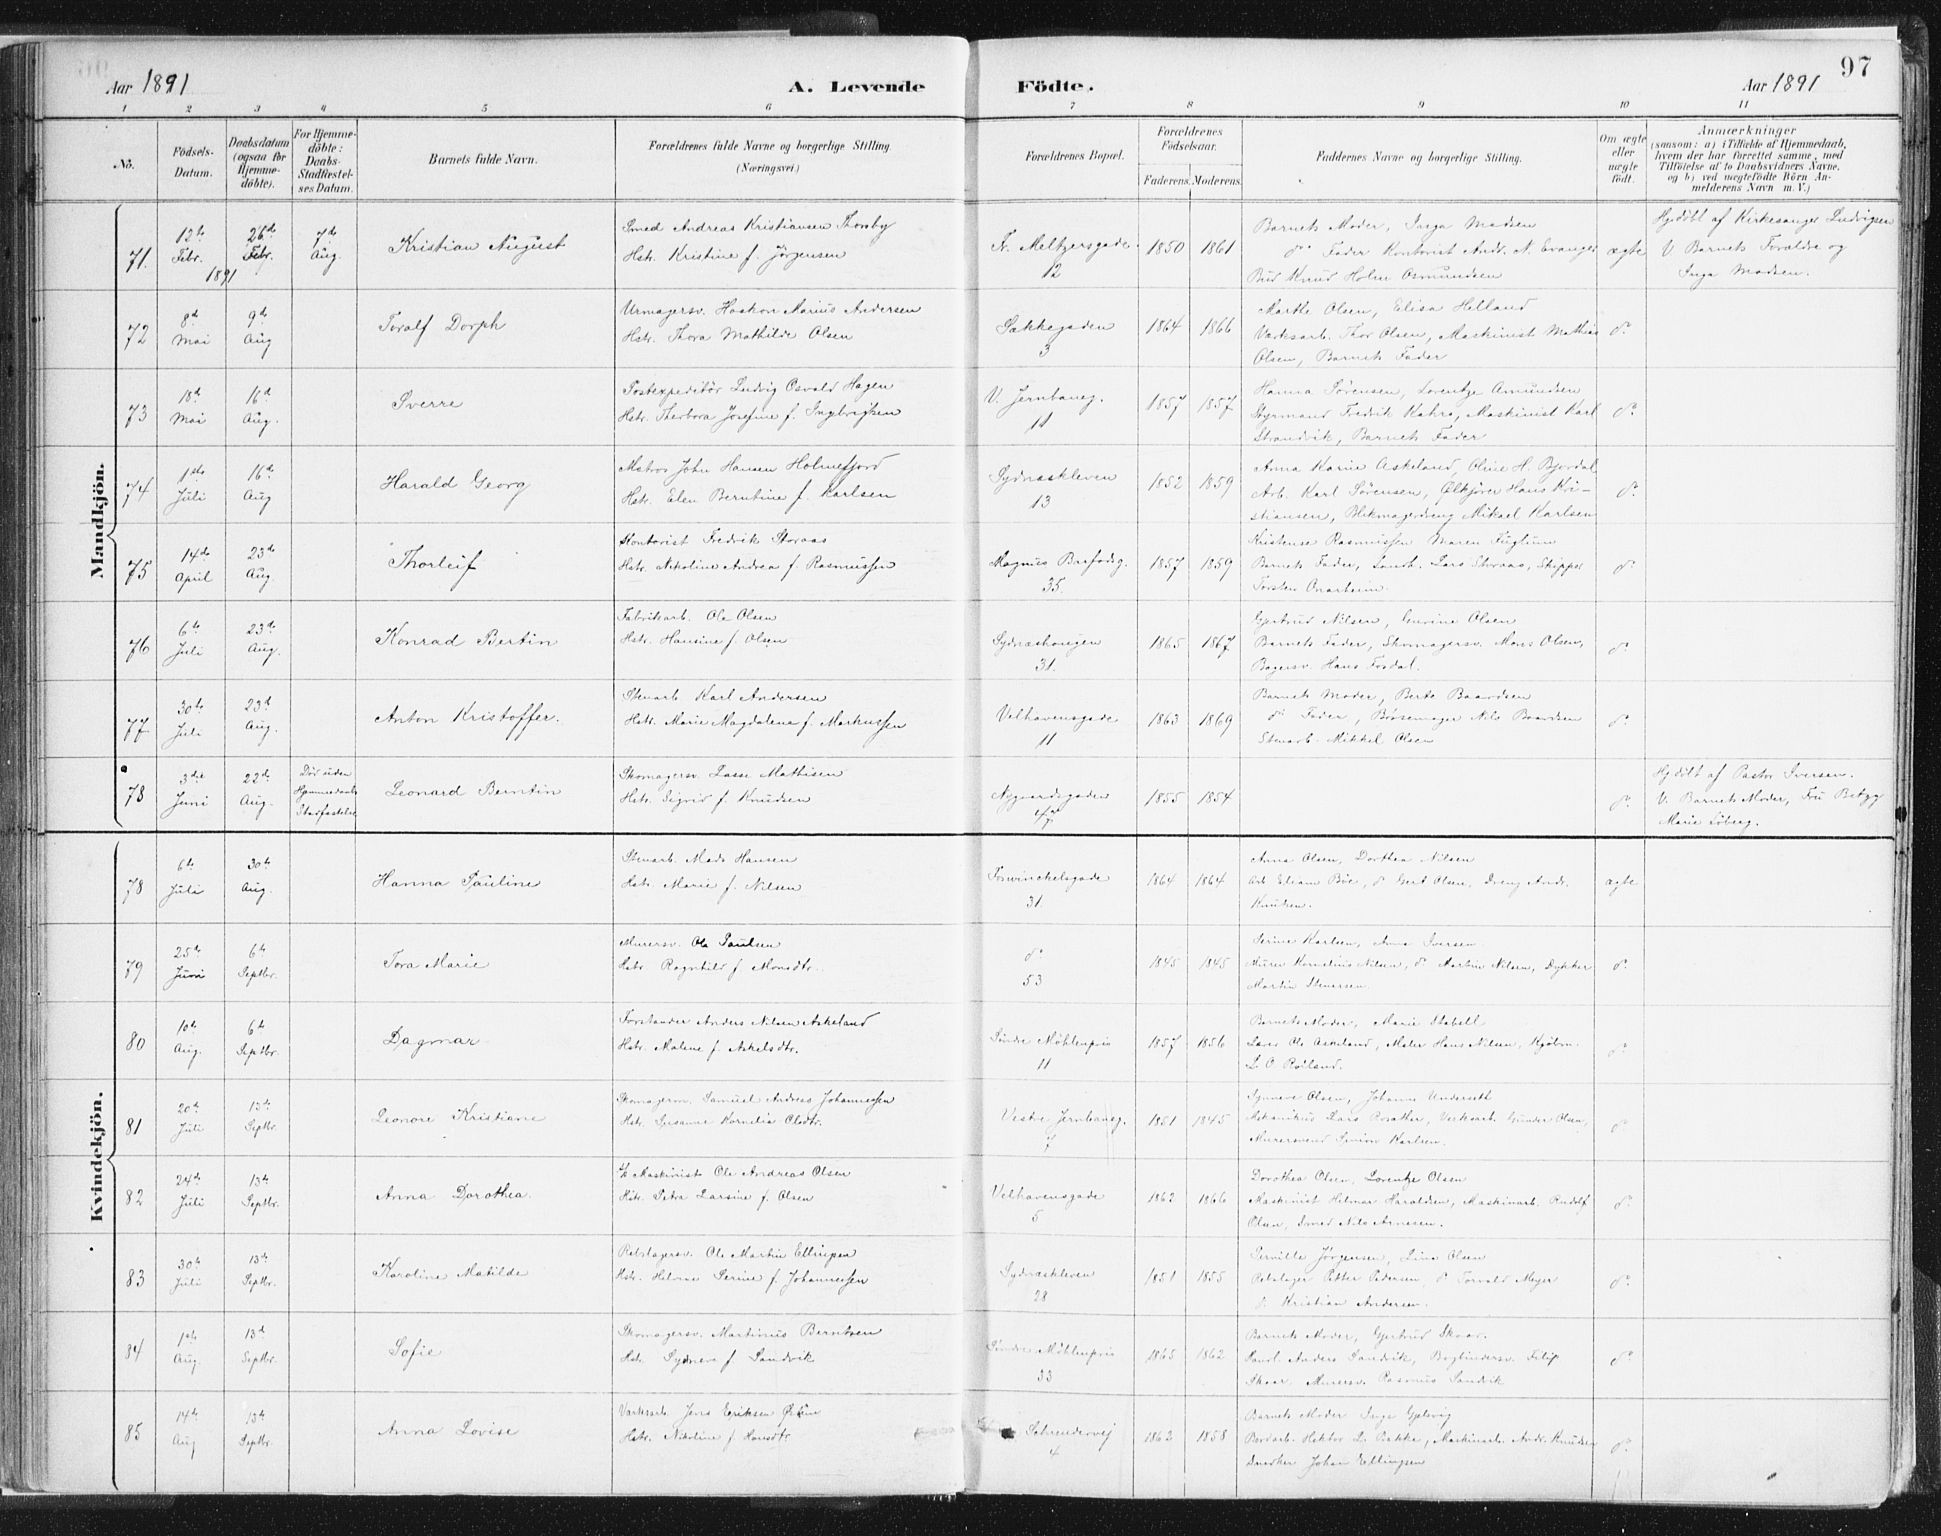 97
Aar 1891 A. Levende Födte. Aar 1891
1 2 3 4 5 6 7 8 9 10 11
No. Födsels-Datum. Daabsdatum (ogsaa for Hjemme-döbte). For Hjemme-döbte: Daabs-Stadfæstel-ses Datum. Barnets fulde Navn. Forældrenes fulde Navne og borgerlige Stilling (Næringsvei.) Forældrenes Bopæl. Forældrenes Födselsaar. Faderens. Moderens. Faddernes Navne og borgerlige Stilling. Om ægte eller uægte födt. Anmærkninger (saasom: a) i Tilfælde af Hjemmedaab, hvem der har forrettet samme, med Tilföielse af to Daabsvidners Navne, og b) ved uægtefödte Börn An-melderens Navn m. V.)
Mandkjön.
71. 12te Febr. 26de Febr. 1891 7de Aug. Kristian August
Smed Andreas Kristiansen Thorsby
Hstr. Kristine f. Jörgensen
Fr. Meltzersgade 12 1850 1861
Barnets Moder, Inga Madsen
do Fader Kontorist Andr. N. Evanger
Bud Knud Holm Osmundsen
ægte
Hj.döbt af Kirkesanger Ludvigsen
V. Barnets Forældre og
Inga Madsen.
72 8de Mai 9de Aug Toralf Dorph
Urmagersv. Haakon Marius Andersen
Hstr. Thora Mathilde Olsen
Sækkegaden 3 1864 1866
Marthe Olsen, Elisa Helland
Værksarb. Thor Olsen, Maskinist Mathias
Olsen, Barnets Fader
do
73 18de Mai 16de Aug. Sverre
Postexpeditör Ludvig Osvald Hagen
Hstr. Josefine f. Ingbrigtsen
V. Jernbaneg. 11 1857 1857
Hanna Sörensen, Lorentze Amundsen
Styrmand Fredrik Kahrs, Maskinist Karl
Strandvik, Barnets Fader
do
74 1ste Juli 16de Aug Harald Georg
Matros John Hansen Holmefjord
Hstr. Elen Berntine f. Karlsen
Sydnæskleven 13 1852 1859
Anna Karine Askeland, Oline H. Bjordal
Arb. Karl Sörensen, Ölkjörer Hans Kri-
stiansen, Blikmagerdreng Mikael Karlsen
do
75 14de April 23de Aug. Thorleif
Kontorist Fredrik Storaas
Hstr. Nikoline Andrea f. Rasmussen
Magnus Barfodsg. 35. 1857 1859
Kristense Rasmussen Maren Fuglum
Barnets Fader, Landh. Lars Storaas, Skipper
Torsten Onarheim.
do
76 6te Juli 23de Aug. Konrad Bertin
Fabrikarb. Ole Olsen
Hstr. Hansine f. Olsen
Sydnæshaugen 31. 1865 1867
Gjertrud Nilsen, Gurine Olsen
Barnets Fader, Skomagersv. Mons Olsen,
Bagersv. Hans Fosdal.
do
77 30te Juli 23de Aug. Anton Kristoffer.
Stenarb. Karl Andersen
Hstr. Marie Magdalena f. Markussen
Velhavensgade 11 1863 1869
Barnets Moder, Berte Baardsen
do Fader, Børsemager Nils Baardsen
Stenarb. Mikkel Olsen
do
78 3die Juni 22de Aug. Död uden Hjemmedaabs Stadfæstelse Leonard Berntin
Skomagersv. Lasse Mathisen
Hstr. Sigrid f. Knudsen
Nygaardsgaden 47 1855 1854
do
Hj.döbt af Pastor Iversen.
V. Barnets Moder, Fru Betzy
Marie Löberg.
Kvindekjön.
78 6te Juli 30te Aug. Hanna Pauline
Stenarb. Mads Hansen
Hstr. Marie f. Nilsen
Foswinckelsgade 31. 1864 1864
Anna Olsen, Dorthea Nilsen
Arb. Böe, do Gert Olsen, Dreng Andr.
Knutsen.
ægte
79 25de Juni 6te Septbr. Tora Marie
Murersv. Ole Paulsen
Hstr. Ragnhild f. Monsdtr.
do 53 1845 1845
Serine Karlsen, Anna Iversen
Murer Kornelius Nilsen, do Martin Nilsen, Dykker
Martin Stenersen.
do
80 10de Aug. 6te Septbr. Dagmar
Forstander Anders Nilsen Askeland
Hstr. Malene f. Askelsdtr.
Söndre Möhlenpris 11 1857 1856
Barnets Moder, Marie Stabell
Lærer Ole Askeland, Maler Hans Nilsen, Kjöbm.
L. O. Röiland.
do
81 20de Juli 13te Septbr. Leonore Kristiane
Skomagerm. Samuel Andreas Johannessen
Hstr. Susanne Kornelia Olsdtr.
Vestre Jernbaneg. 7 1851 1845
Synneve Olsen, Johanne Underseth
Mekanikus Lars, Værksarb. Gunder Olsen,
Murersvend Simon Karlsen.
do
82 24de Juli 13te Septbr. Anna Dorothea.
Maskinist Ole Andreas Olsen
Hstr. Petra Larsine f. Olsen
Velhavensgade 5 1862 1866
Dorothea Olsen, Lorentze Olsen
Maskinist Helmer Haraldsen, Maskinarb. Rudolf
Olsen, Smed Nils Arnesen.
do
83 30te Juli 13te Septbr. Karoline Matilde
Rebslagersv. Ole Martin Ellingsen
Hstr. Helene Serine f. Johannessen
Sydnæskleven 28 1851 1855
Pernille Jörgensen, Lina Olsen
Rebslager Petter Pedersen, do Torvald Meyer
do Kristian Andersen.
do
84 1ste Aug 13de Septbr. Sofie
Skomagersv. Martinus Berntsen
Hstr. Sydneve f. Sandvik
Söndre Möhlenpris 33 1865 1862
Barnets Moder, Gjertrud Skaar.
Landl. Anders Sandvik, Bogbindersv. Filip
Skaar, Murersv. Rasmus Sandvik
do
85 14de Aug 13te Septbr. Anna Lovise
Værksarb. Jens Eriksen
Hstr. Nikoline f. Hansdtr.
Strendervej 4 1862 1858
Barnets Moder Inga Gjelsvig
Bordarb. Hektor L. Bakke, Maskinarb. Andr. Knudsen
Snedker Johan Ellingsen
do